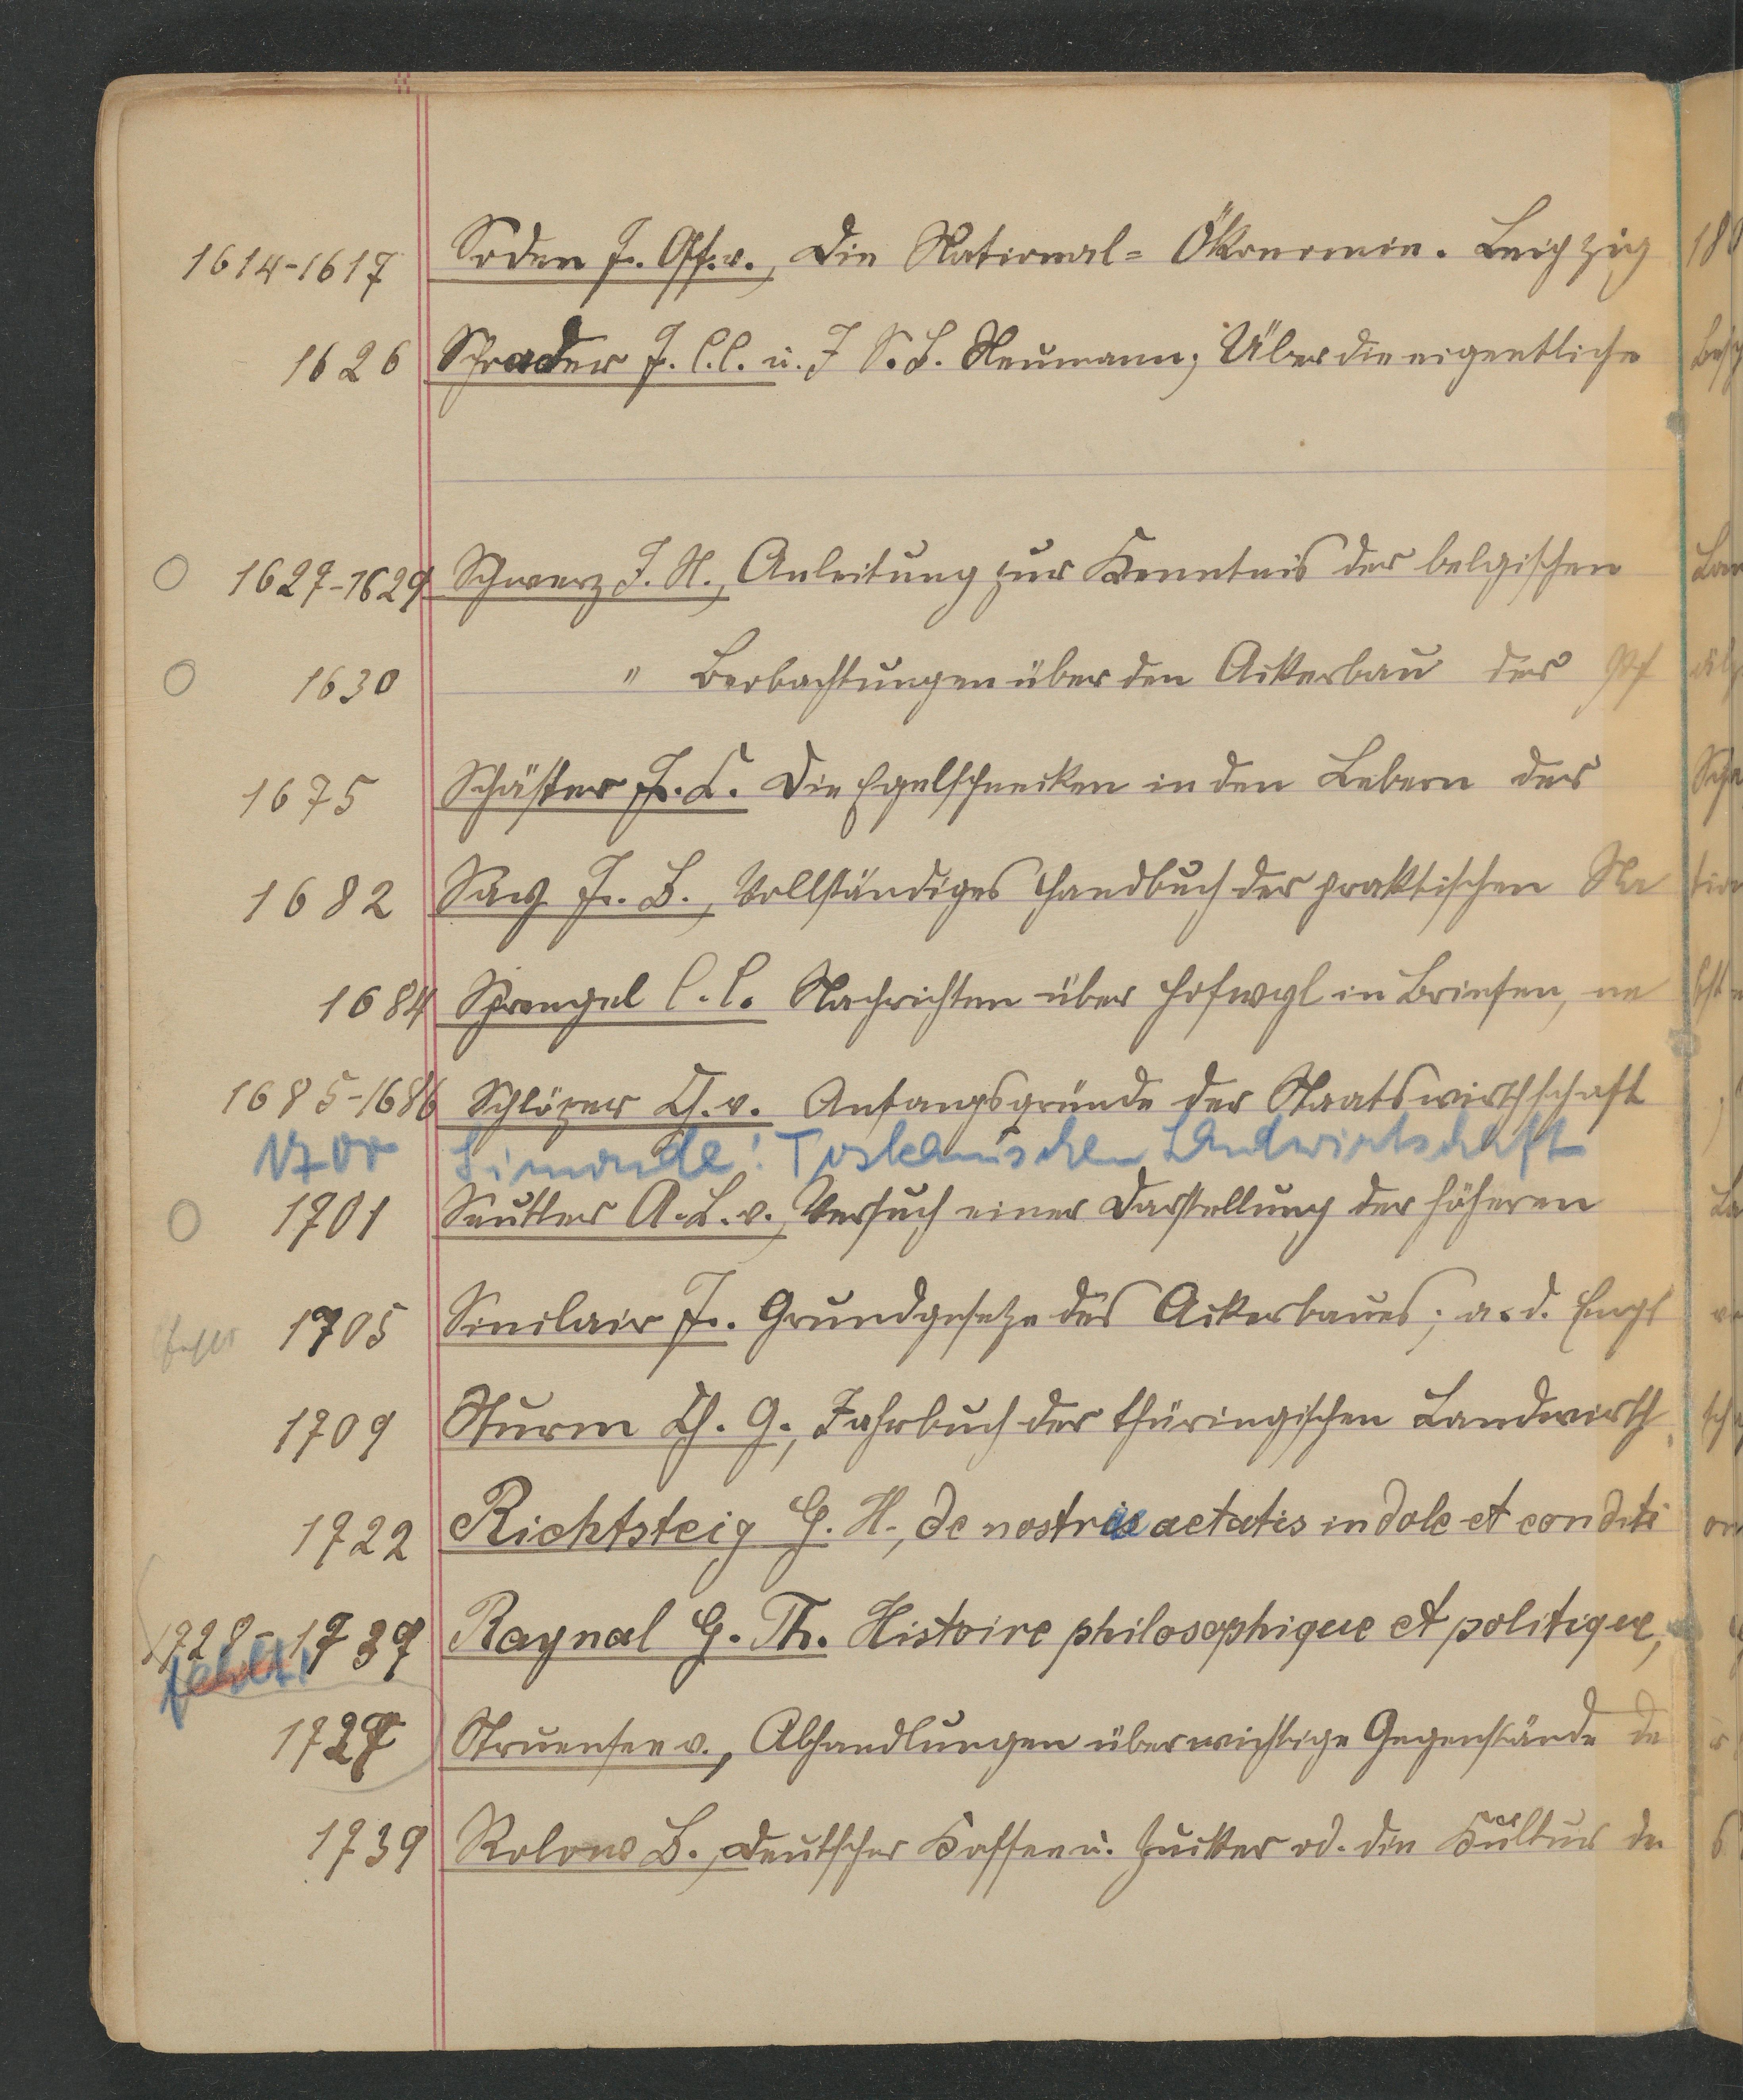 1614-1617 Soden J. Gf. v., Die National= Ökonomie. Leipzig 180
1626 Schrader J. C. C. u. J S. B. Neumann; Über die eigentliche Besch
1627-1629 Schwerz J. N., Anleitung zur Kenntnis der belgischen Lan
1630 " Beobachtungen über den Ackerbau der Pf älz
1675 Schäffer J. C. Die Egelschnecken in den Lebern der Scha
1682 Say J. B., Vollständiges Handbuch der praktischen Na tio
1684 Sprengel C. C. Nachrichten über Hofwyl in Briefen, ne bst
1685-1686 Schlözer Ch. v. Anfangsgründe der Staatswirthschaft
1700 Simonde: Toskanischen Landwirtschaft
1701 Seutter A. L. v., Versuch einer Darstellung der höheren La
1705 Sinclair J. Grundgesetze des Ackerbaues; a. d. Engl
1709 Sturm Ch. G., Jahrbuch der thüringischen Landwirth sch
1722 Richtsteig G. H., de nostrae aetatis indole et conditi on
1728-1737 Raynal G. Th. Histoire philosophique et politique,
fehlt!
1727 Struensee v., Abhandlungen über wichtige Gegenstände de r
1739 Rolow B., Deutscher Kaffee u. Zucker od. die Kultur de